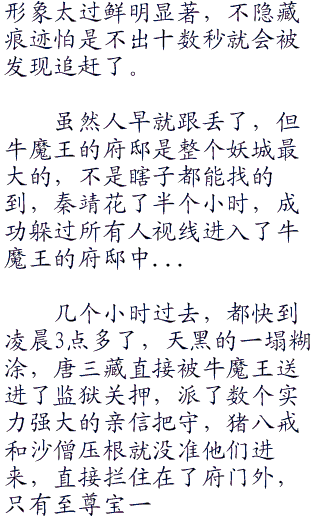 形象太过鲜明显著，不隐藏
痕迹怕是不出十数秒就会被
发现追赶了。
虽然人早就跟丢了，但
牛魔王的府邸是整个妖城最
大的，不是瞎子都能找的
到，秦靖花了半个小时，成
功躲过所有人视线进入了牛
魔王的府邸中...
几个小时过去，都快到
凌晨3点多了，天黑的一塌糊
涂，唐三藏直接被牛魔王送
进了监狱关押，派了数个实
力强大的亲信把守，猪八戒
和沙僧压根就没准他们进
来，直接拦住在了府门外，
只有至尊宝一